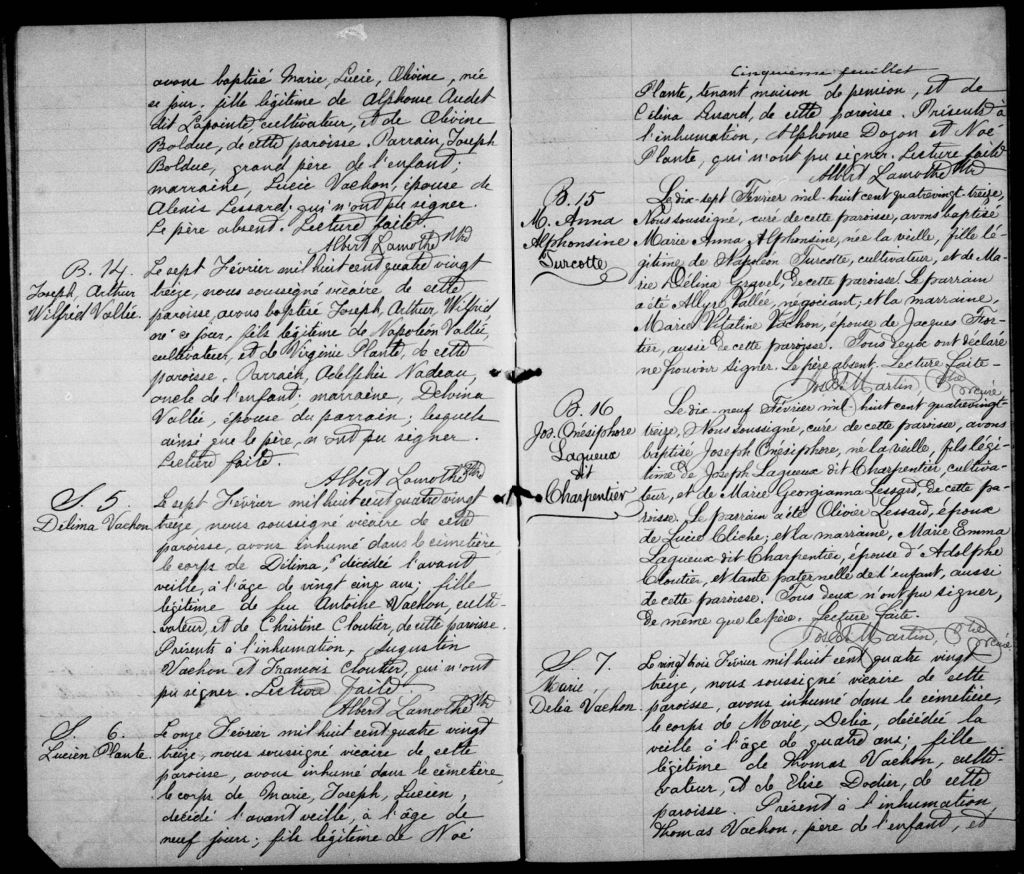 avons baptisé Marie, Lucie, Olivine, née
ce jour, fille légitime de Alphonse Audet
dit Lapointe, cultivateur, et de Olivine
Bolduc, de cette paroisse. Parrain, Joseph
Bolduc, grand père de l'enfant;
marraine, Lucie Vachon, épouse de
Alexis Lessard; qui n'ont pu signer.
Le père absent. Lecture faite.
Albert Lamothe Ptre
B. 14.
Joseph, Arthur
Wilfrid Vallée.
Le sept Février mil huit cent quatre vingt
treize, nous soussigné vicaire de cette
paroisse, avons baptisé Joseph, Arthur, Wilfrid,
né ce jour, fils légitime de Napoléon Vallée,
cultivateur, et de Virginie Plante, de cette
paroisse. Parrain, Adelphis Nadeau,
oncle de l'enfant; marraine, Delvina
Vallée, épouse du parrain; lesquels
ainsi que le père, n'ont pu signer.
Lecture faite.
Albert Lamothe Ptre
S. 5.
Délima Vachon.
Le sept Février mil huit cent quatre vingt
treize, nous soussigné vicaire de cette
paroisse, avons inhumé dans le cimetière
le corps de Délima, décédée l'avant
veille, à l'âge de vingt cinq ans; fille
légitime de feu Antoine Vachon, culti-
vateur, et de Christine Cloutier, de cette paroisse.
Présents à l'inhumation, Augustin
Vachon et Francois Cloutier, qui n'ont
pu signer. Lecture faite
Albert Lamothe Ptre
S. 6.
Lucien Plante.
Le onze Février mil huit cent quatre vingt
treize, nous soussigné vicaire de cette
paroisse, avons inhumé dans le cimetière
le corps de Marie, Joseph, Lucien,
décédé l'avant veille, à l'âge de
neuf jours; fils légitime de Noé
Cinquième feuillet
Plante, tenant maison de pension, et de
Célina, de cette paroisse. Présents à
l'inhumation, Alphonse Doyon et Noé
Plante, qui n'ont pu signer. Lecture faite
Albert Lamothe Ptre
B. 15
M. Anna
Alphonsine
Turcotte
Le dix-sept Février mil-huit cent quatrevingt-treize,
Nous soussigné, curé de cette paroisse, avons baptisé
Marie Anna Alphonsine, née la vielle, fille lé-
gitime de Napoléon Turcotte, cultivateur, et de Ma-
rie Délina Gravel, de cette paroisse. Le parrain
a été Allyre Vallée, négociant; et la marraine,
Marie Vitaline Vachon, épouse de Jacques For-
tier, aussi de cette paroisse. Tous deux ont déclaré
ne pouvoir signer. Le père absent. Lecture faite.
Martin Ptre
curé
B. 16
Jos. Onésiphore
Lagueux
dit
Charpentier
Le dix-neuf Février mil-huit cent quatrevingt-
treize, Nous soussigné, curé de cette paroisse, avons
baptisé Joseph Onésiphore, né la vielle, fils légi-
time de Joseph Lagueux dit Charpentier, cultiva-
teur, et de Marie Georgianna Lessard, de cette pa-
roisse. Le parrain a été Olivier Lessard, époux
de Lucie Cliche; et la marraine, Marie Emma
Lagueux dit Charpentier, épouse d'Adolphe
Cloutier, et tante paternelle de l'enfant, aussi
de cette paroisse. Tous deux n'ont pu signer,
de même que le père. Lecture faite.
Martin, Ptre
curé
S. 7.
Marie,
Delia Vachon.
Le vingt trois Février mil huit cent quatre vingt
treize, nous soussigné vicaire de cette
paroisse, avons inhumé dans le cimetière
le corps de Marie, Delia, décédée la
veille à l'âge de quatre ans; fille
légitime de Thomas Vachon, culti-
vateur, et de Elise Dodier, de cette
paroisse. Présent à l'inhumation,
Thomas Vachon, père de l'enfant, et